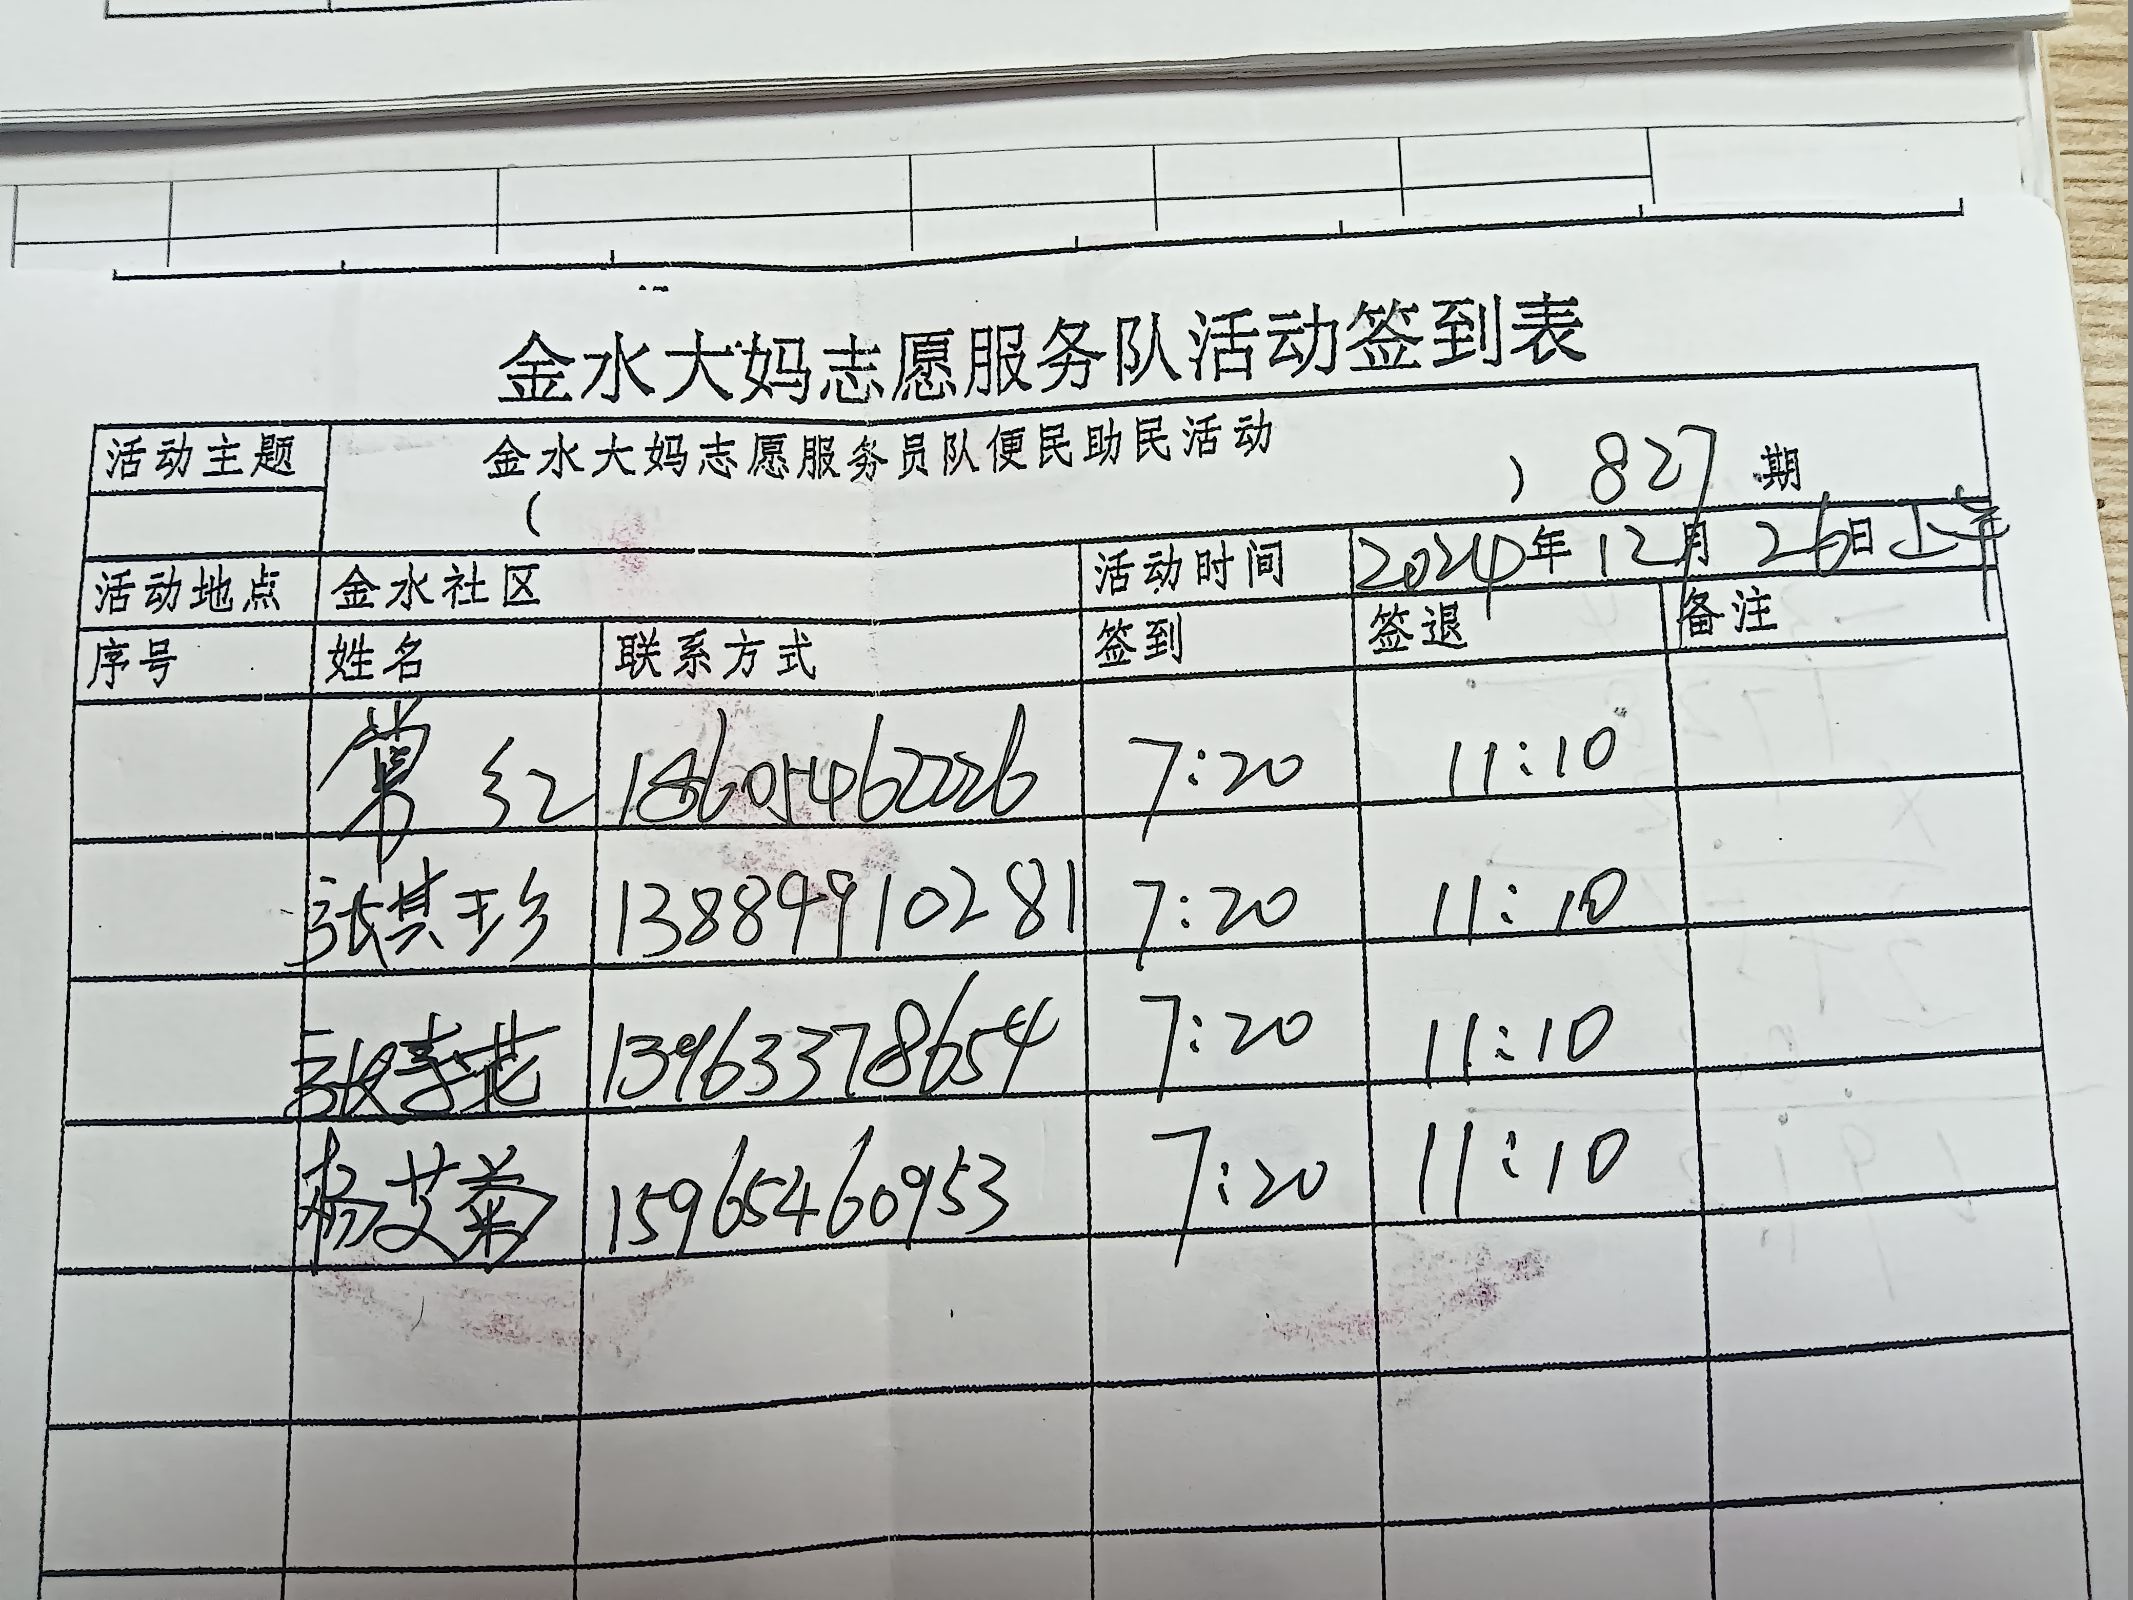 金水大妈志愿服务队活动签到表
活动主题 金水大妈志愿服务员队便民助民活动
( ) 827 期
活动地点 金水社区 活动时间 2024年12月26日上午
序号 姓名 联系方式 签到 签退 备注
常红 18605462226 7:20 11:10
张其珍 13884910281 7:20 11:10
张春花 13963378654 7:20 11:10
杨艾菊 15965460953 7:20 11:10